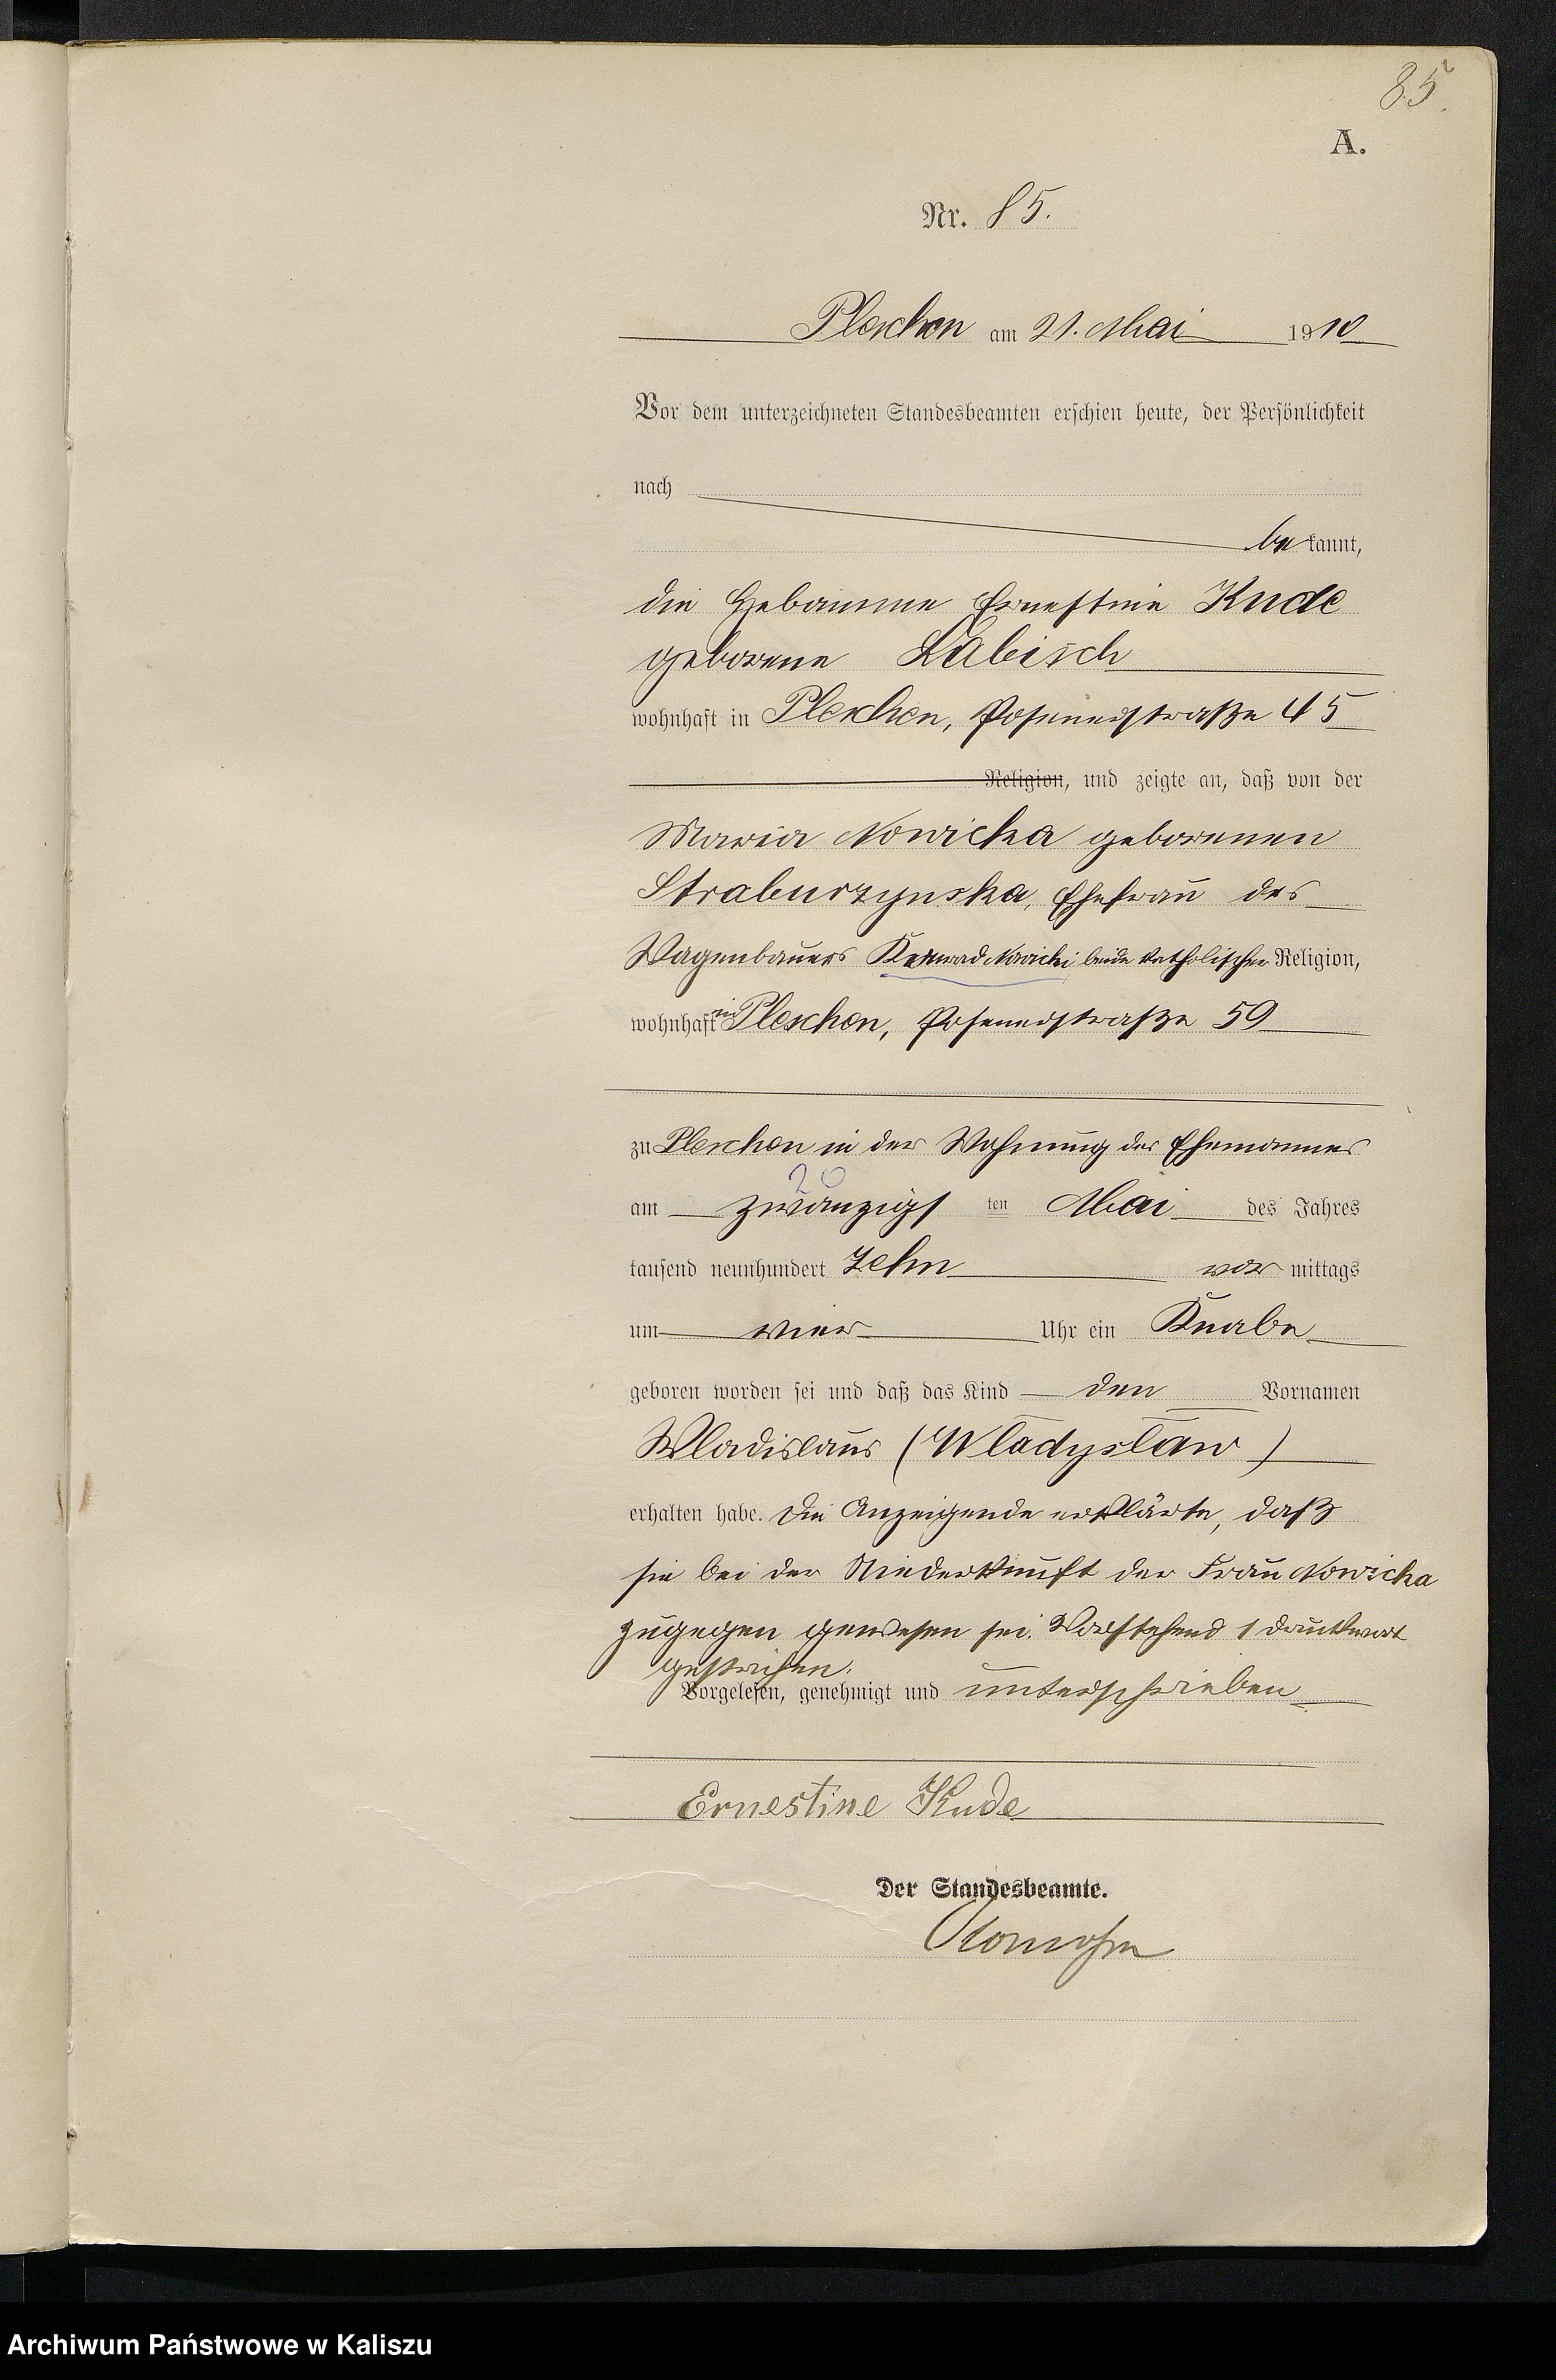 85.
A.
Nr. 85.
Pleschen am 21. Mai 1910
Vor dem unterzeichneten Standesbeamten erschien heute, der Persönlichkeit
nach
bekannt,
die Hebamme Ernestine Kude
geborene Labisch
wohnhaft in Pleschen, Posenerstraße 45
Religion, und zeigte an, daß von der
Maria Nowicka geborenen
Straburzynska, Ehefrau des
Wagenbauers Konrad Nowicki beide katholischer Religion,
wohnhaft in Pleschen, Posenerstraße 59
zu Pleschen in der Wohnung des Ehemannes
20
am zwanzigsten Mai des Jahres
tausend neunhundert zehn vormittags
um vier Uhr ein Knabe
geboren worden sei und daß das Kind den Vornamen
Wladislaus (Władysław)
erhalten habe. Die Anzeigende erklärte, daß
sie bei der Niederkunft der Frau Nowicka
zugegen gewesen sei. Vorstehend 1 Druckwort
gestrichen.
Vorgelesen, genehmigt und unterschrieben
Ernestine Kude
Der Standesbeamte.
Archiwum Państwowe w Kaliszu